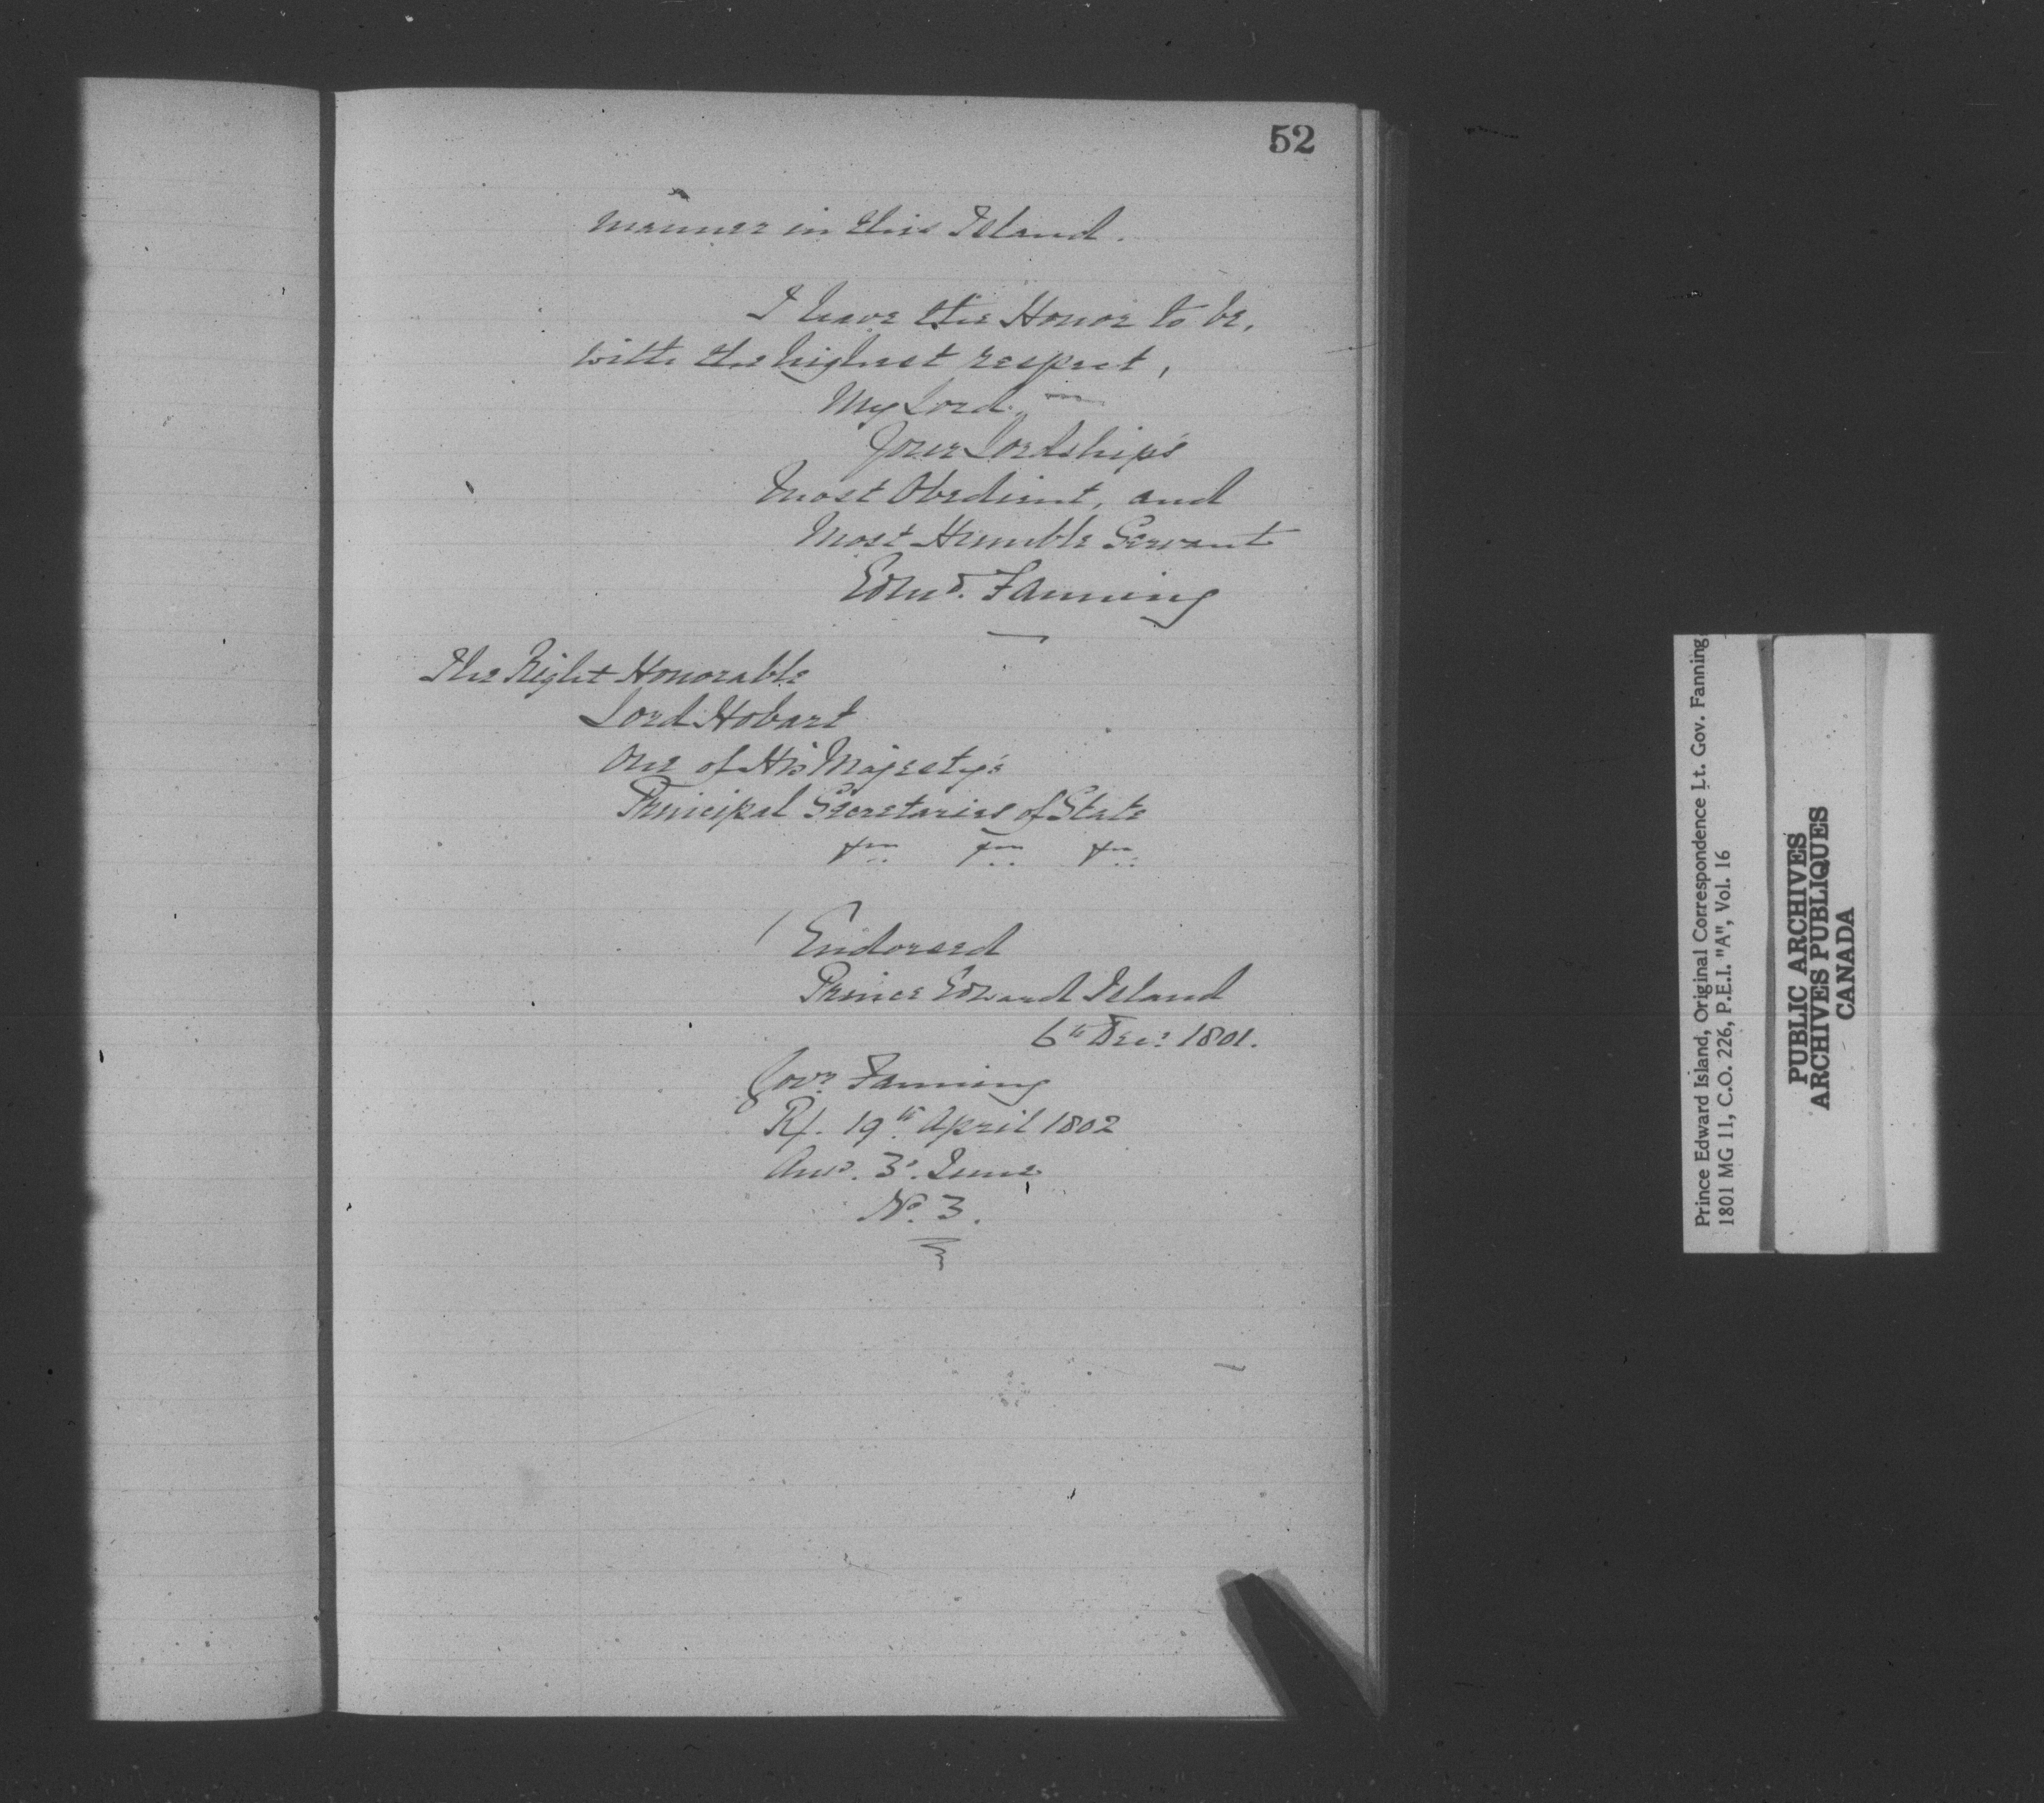 52
manner in this Island.
I have the Honor to be,
with the highest respect,
My Lord,
Your Lordship's
Most Obedient, and
Most Humble Servant
Edmd. Fanning
The Right Honorable
Lord Hobart
One of His Majesty's
Principal Secretaries of State
Endorsed
Prince Edward Island
6th Decr 1801.
Govr Fanning
Rf. 19th April 1802
Ansd. 3d. June
No. 3.
Prince Edward Island, Original Correspondence Lt. Gov. Fanning
1801 MG 11, C.O. 226, P.E.I. "A", Vol. 16
PUBLIC ARCHIVES
ARCHIVES PUBLIQUES
CANADA